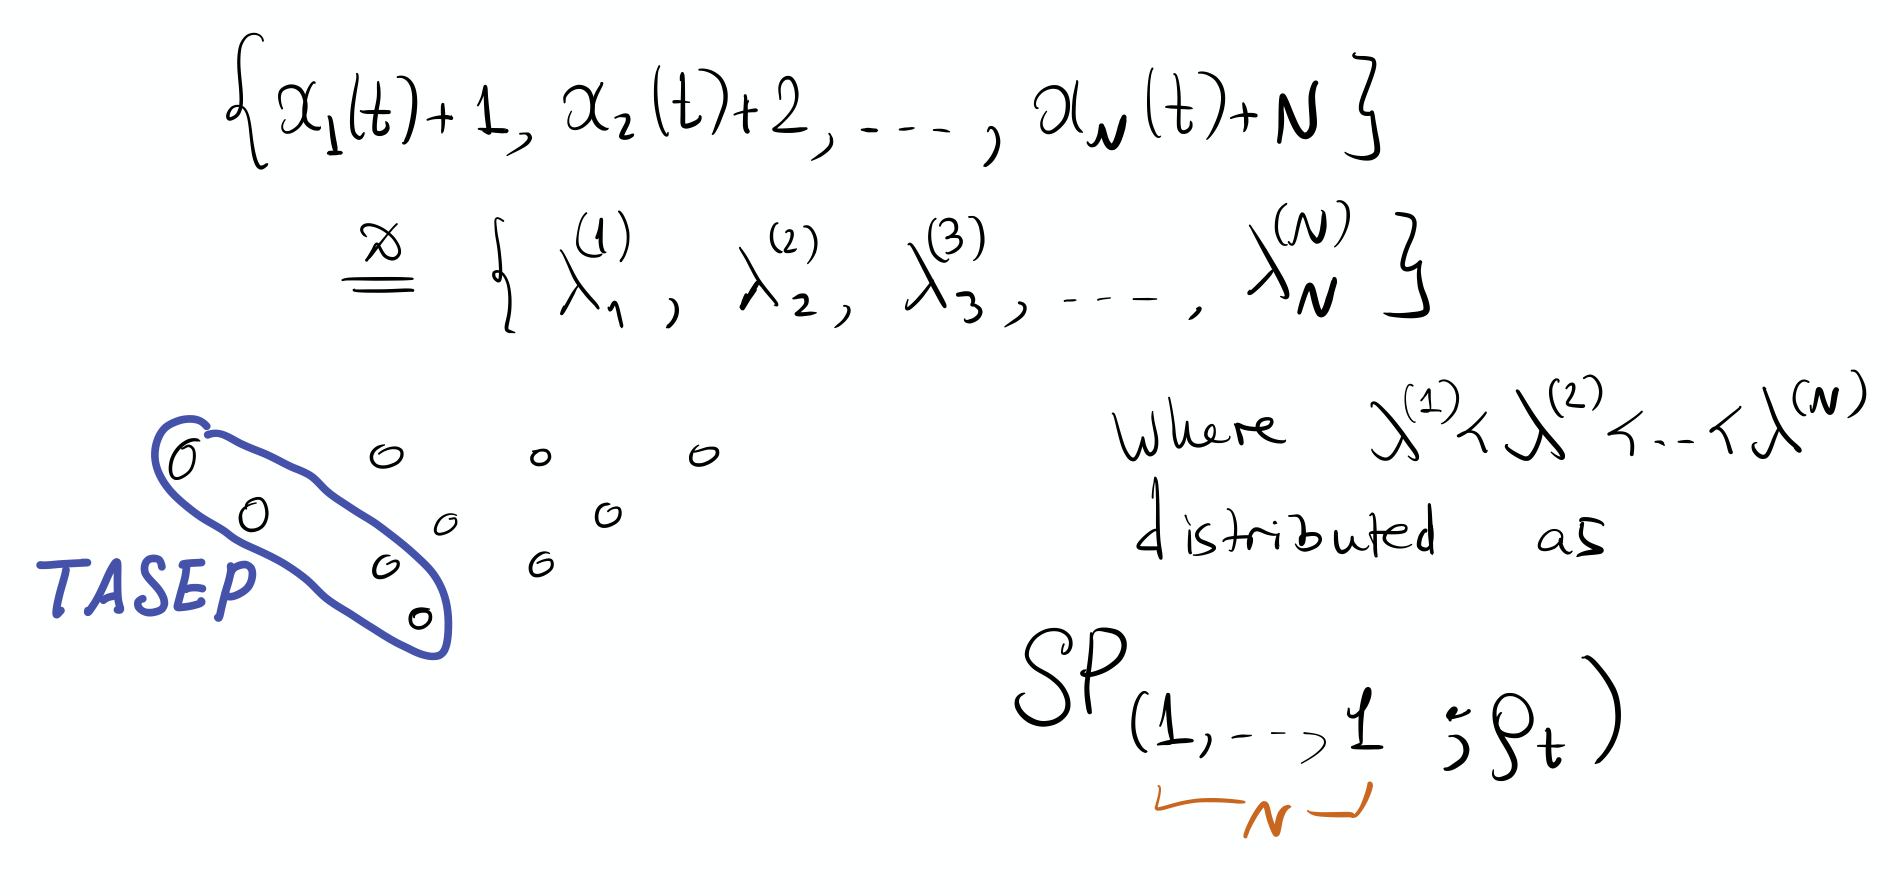 {x₁(t)+1, x₂(t)+2, ----, x_N(t)+N}
𝒟= {λ₁⁽¹⁾, λ₂⁽²⁾, λ₃⁽³⁾, ----, λ_N⁽ᴺ⁾}
where λ⁽¹⁾≺λ⁽²⁾≺...≺λ⁽ᴺ⁾
distributed as
TASEP
SP(1,---,1 ; ρₜ)
N